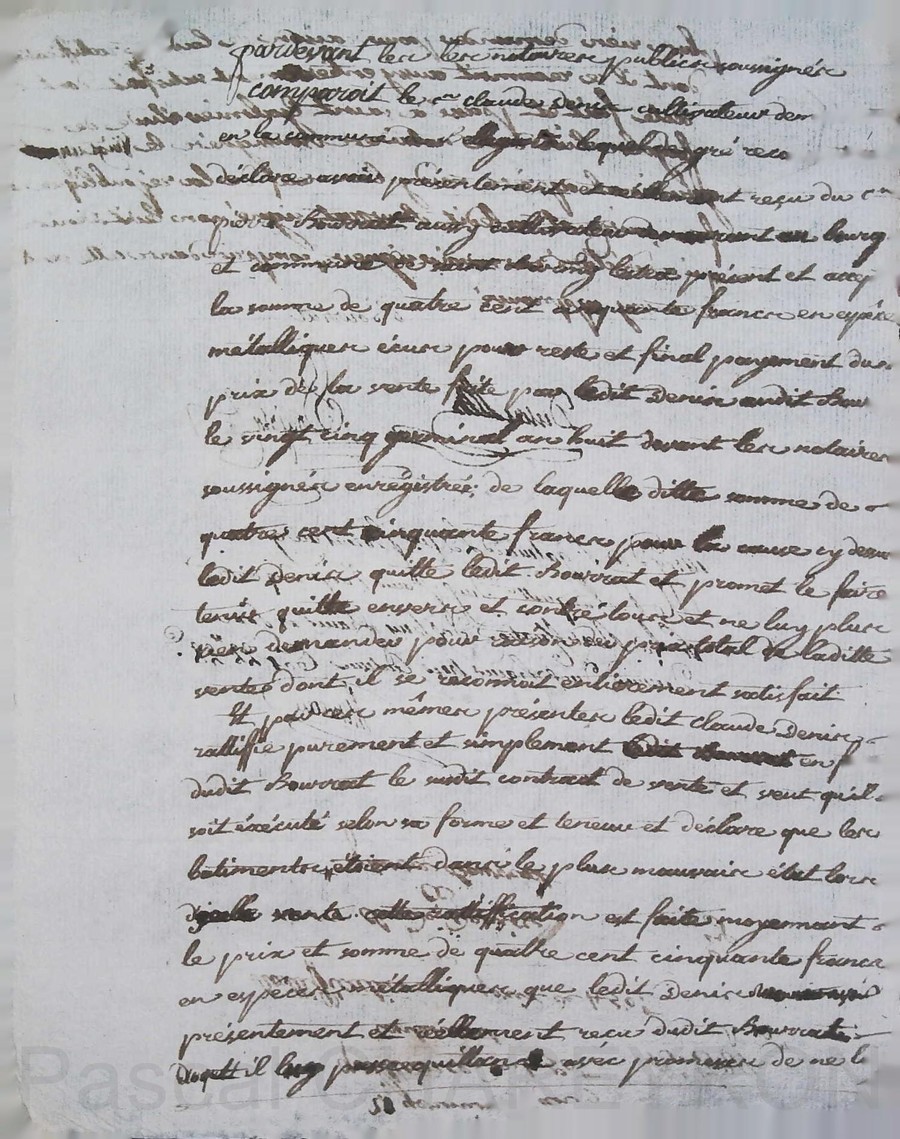 pardevant les les notaires publics soussignés
comparoit le cn claude denis cultivateur dem
en la commune lequel de gré reco
déclare avoir présentement et réellement reçu du cn
pierre Bourrat aussy cultivateur demeurant au bourg
et commune de saint présent et accp
la somme de quatre cent cinquante francs en espèce
métalliques écus pour reste et final payement du
prix de la vente faite par ledit Denis audit Bour
le vingt cinq germinal an huit devant les notaires
soussignés enregistrée; de laquelle ditte somme de
quatre cent cinquante francs pour la cause cy dessu
ledit Denis quitte ledit Bourrat et promet le faire
tenir quitte envers et contre tous et ne luy plus
rien demander pour raison du prix total de laditte
vente dont il se reconnoit entièrement satisfait
Et par ces mêmes présentes ledit claude Denis
ratiffie purement et simplement en f
dudit Bourrat le susdit contrat de vente et veut qu'il
soit éxécuté selon sa forme et teneur et déclare que les
batiments étoient dans le plus mauvais état lors
d'ycelle vente cette ratiffication est faite moyennant
le prix et somme de quattre cent cinquante francs
en especes métalliques que ledit Denis
présentement et réellement reçu dudit Bourrat
Duquel il luy passe quittance avec promesse de ne l
Pascal